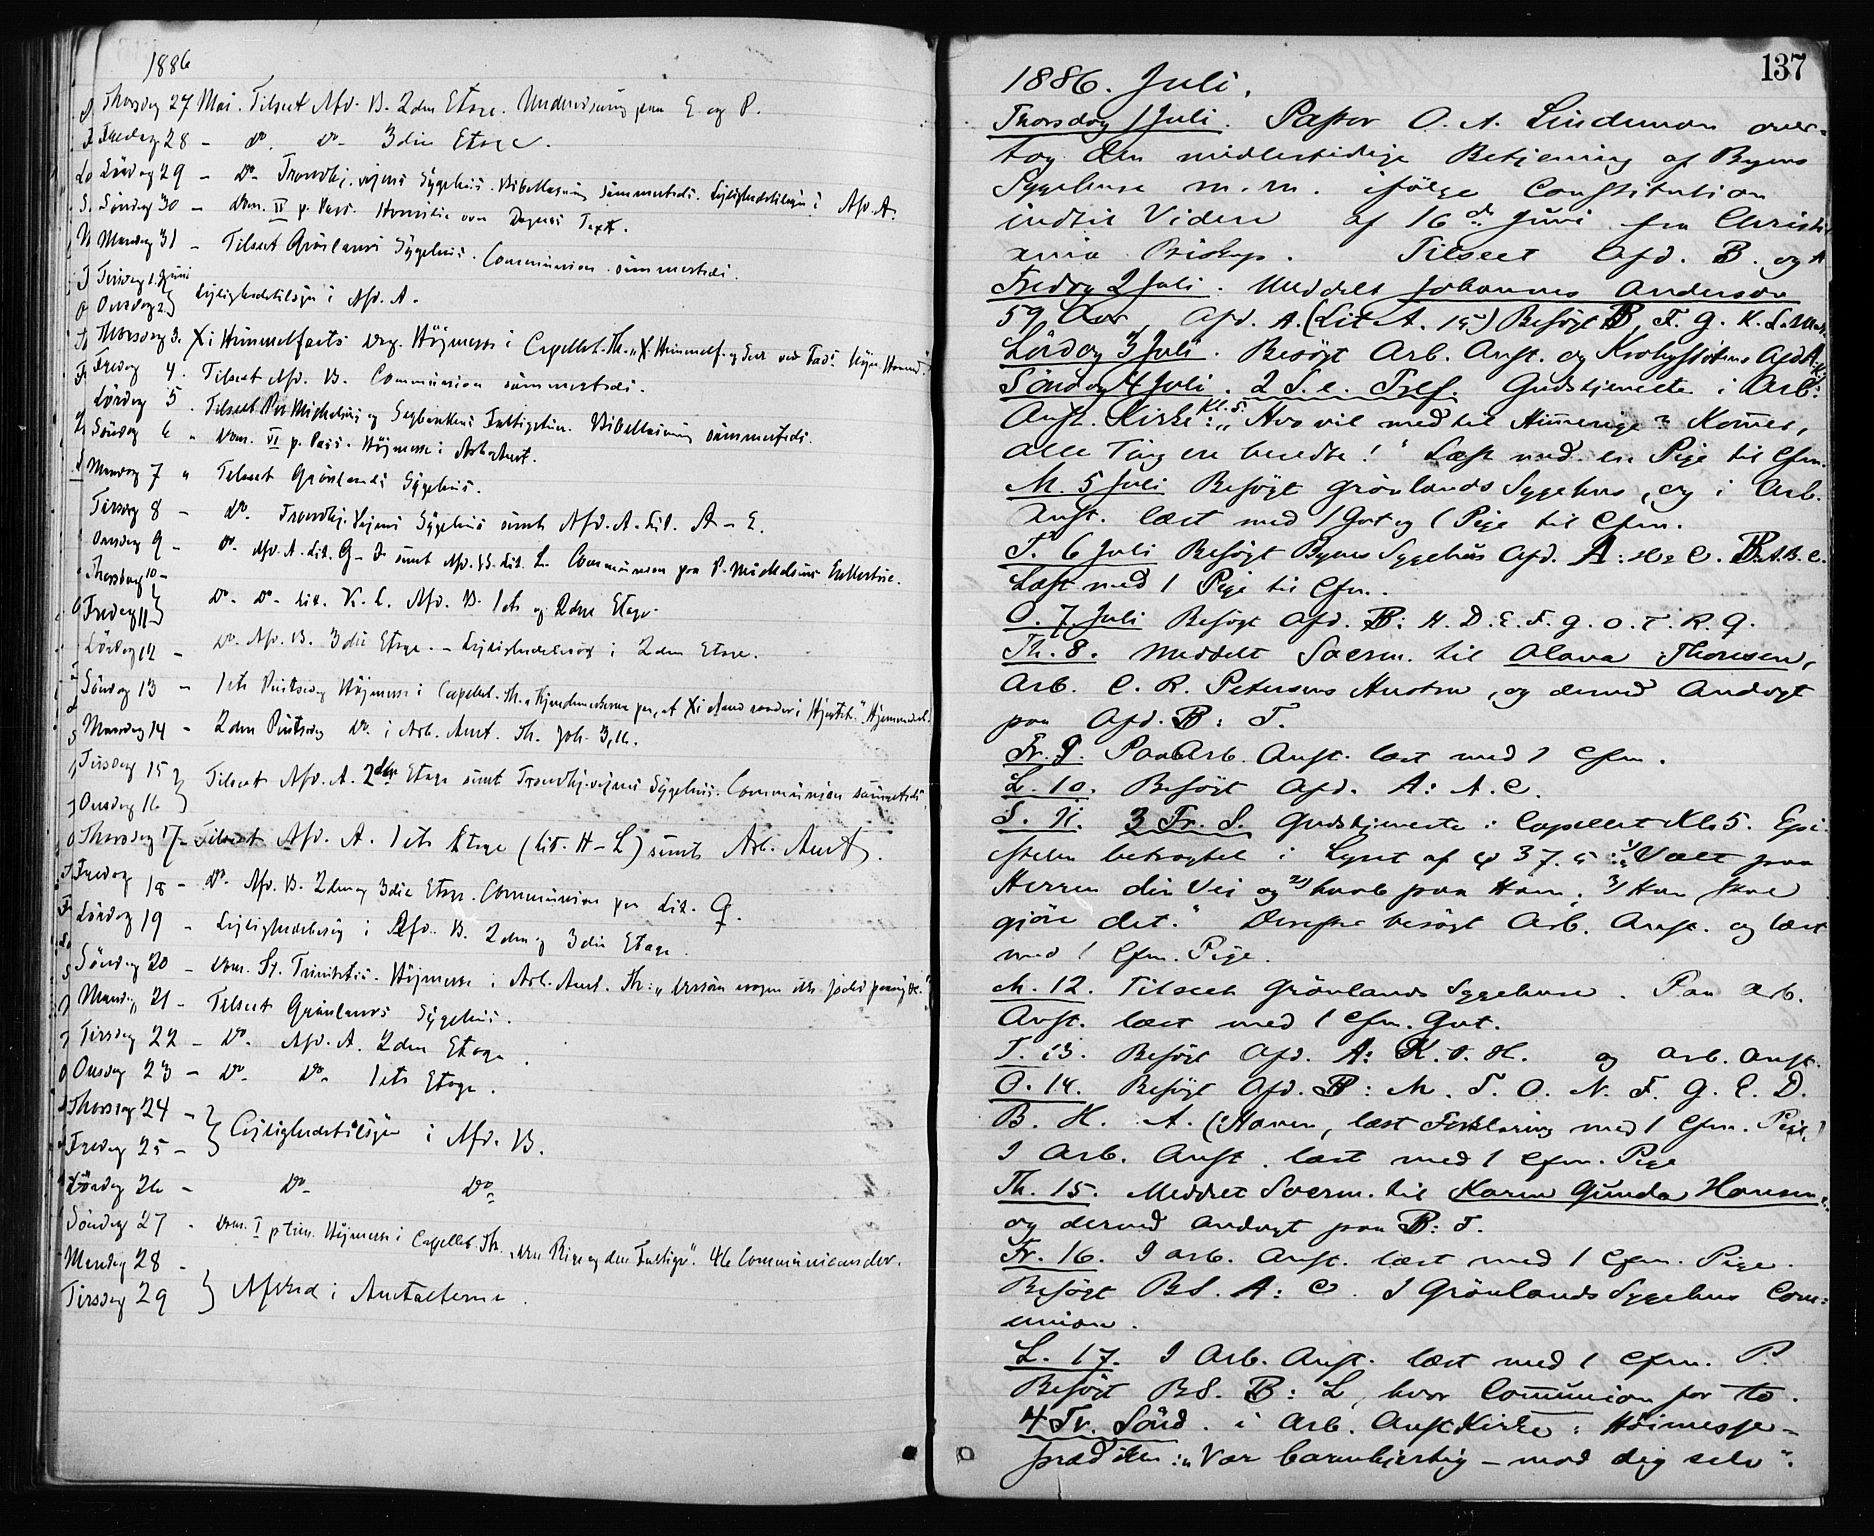 1886
Thorsdag 27 Mai. Tilseet Afd. B. 2den Etage. Undervisning paa E. og P.
Fredag 28 - do. do. 3die Etage.
Lördag 29 - do. Trondhj.vejens Sygehus. Bibellæsning sammesteds. Lejlighedstilsyn i Afd. A.
Söndag 30 - Dom. V p. Pasc. Homilie over Dagens Text.
Mandag 31 - Tilseet Grönlands Sygehus. Communion sammesteds.
Tirsdag 1. Juni
Onsdag 2 } Lejlighedstilsyn i Afd. A.
Thorsdag 3. Xi Himmelfarts Dag. Höjmesse i Capellet. Th. „X Himmelf. og Sæde ved Fad. höjre Haand."
Fredag 4. Tilseet Afd. B. Communion sammesteds.
Lördag 5. Tilseet P. Michelsens og Fattigstuen. Bibellæsning sammesteds.
Söndag 6 „ Dom. VI p. Pasc. Höjmesse i Arb. Anst.
Mandag 7 „ Tilseet Grönlands Sygehus.
Tirsdag 8 - do. Trondhj. Vejens Sygehus samt Afd. A. Lit. A - E.
Onsdag 9 - do. Afd. A. Lit. G - J samt Afd. B. Lit. L. Communion paa P. Michelsens Enkestue.
Thorsdag 10 -
Fredag 11 } do. do. Lit. K. L. Afd. B. 1ste og 2den Etage.
Lördag 12 - do. Afd. B. 3die Etage. - Lejlighedsbesög i 2den Etage.
Söndag 13 - 1ste Pintsedag Höjmesse i Capellet. Th. „Kjendemærkerne paa, at Xi Aand raader i Hjertet."
Mandag 14 - 2den Pintsedag do. i Arb. Anst. Th. Joh. 3,16.
Tirsdag 15
Onsdag 16 } Tilseet Afd. A. 2den Etage samt Trondhj.vejens Sygehus. Communion sammesteds.
Thorsdag 17 - Tilseet Afd. A. 1ste Etage (Lit. H - L) samt Arb. Anst.
Fredag 18 - do. Afd. B. 2den og 3die Etage. Communion paa Lit. G.
Lördag 19 - Lejlighedsbesög i Afd. B. 2den og 3die Etage.
Söndag 20 - Dom. St. Trinitatis. Höjmesse i Arb. Anst. Th: „Dersom nogen ikke födes paany &c."
Mandag 21 - Tilseet Grönlands Sygehus.
Tirsdag 22 - do. Afd. A. 2den Etage.
Onsdag 23 - do. do. 1ste Etage.
Thorsdag 24 -
Fredag 25 - } Lejlighedstilsyn i Afd. B.
Lördag 26 - do. do.
Söndag 27 - Dom. I p trin. Höjmesse i Capellet. Th. „Den Rige og den Fattige". 46 Communicander.
Mandag 28 -
Tirsdag 29 } Afsked i Anstalterne.
137
1886. Juli.
Thorsdag 1 Juli. Pastor O. A. Lindeman over-
tog den midlertidige Betjening af Byens
Sygehuse m. m. ifölge Constitution
indtil Videre af 16de Juni fra Christi-
ania Biskop. Tilseet Afd. B. og A
Fredag 2 Juli. Meddelt Johannes Anderson
59 Aar Afd. A. (Lit A. 15) Besögt B, F. G. K. L. M.
Lördag 3 Juli. Besögt Arb. Anst. og Krohgstötens Afd A.
Söndag 4 Juli. 2 S. e. Tref. Gudstjeneste i Arb.
Anst. Kirke: Kl. 5. „Hvo vil med til Himmerige? Komer,
alle Ting ere beredte!" Læst med en Pige til Cfm.
M. 5 Juli Besögt Grönlands Sygehus, og i Arb.
Anst. læst med 1 Gut og 1 Pige til Cfm.
T. 6 Juli Besögt Byens Sygehus Afd. A: H & C. B. A. B. C.
Læst med 1 Pige til Cfm.
O. 7 Juli Besögt Afd. B: H. D. E. F. G. O. T. R. Q.
Th. 8. Meddelt Sacrm. til Olava Thoresen,
Arb. C. R. Petersens Hustru, og derved Andagt
paa Afd. B: T.
Fr. 9. Paa Arb. Anst. læst med 1 Cfm.
L. 10. Besögt Afd. A: A. C.
S. 11. 3 Tr. S. Gudstjeneste i Capellet Kl. 5. Epi-
stelen betragtet i Lyset af ψ 37. 5: „1) Vælt paa
Herren din Vei og 2) haab paa Ham; 3) Han skal
gjöre det." Derefter besögt Arb. Anst. og læst
med 1 Cfm. Pige.
M. 12. Tilseet Grönlands Sygehuse. Paa Arb.
Anst. læst med 1 Cfm. Gut.
T. 13. Besögt Afd. A: K. I. H. og Arb. Anst.
O. 14. Besögt Afd. B: M. T. O. N. F. G. C. D.
B. H. A. (Haven, læst Forklaring med 1 Cfm. Pige)
I Arb. Anst. læst med 1 Cfm. Pige
Th. 15. Meddelt Sacrm. til Karen Gunda Hansen
og derved Andagt paa B: T.
Fr. 16. I Arb. Anst. læst med 1 Cfm. Pige.
Besögt B S. A: C. I Grönlands Sygehus Com-
union.
L. 17. I Arb. Anst. læst med 1 Cfm. P.
Besögt BS. B: L, hvor Comunion for to.
4 Tr. Sönd. i Arb. Anst Kirke: Höimesse-
præd iken: „Vær barmhjertig - mod dig selv".